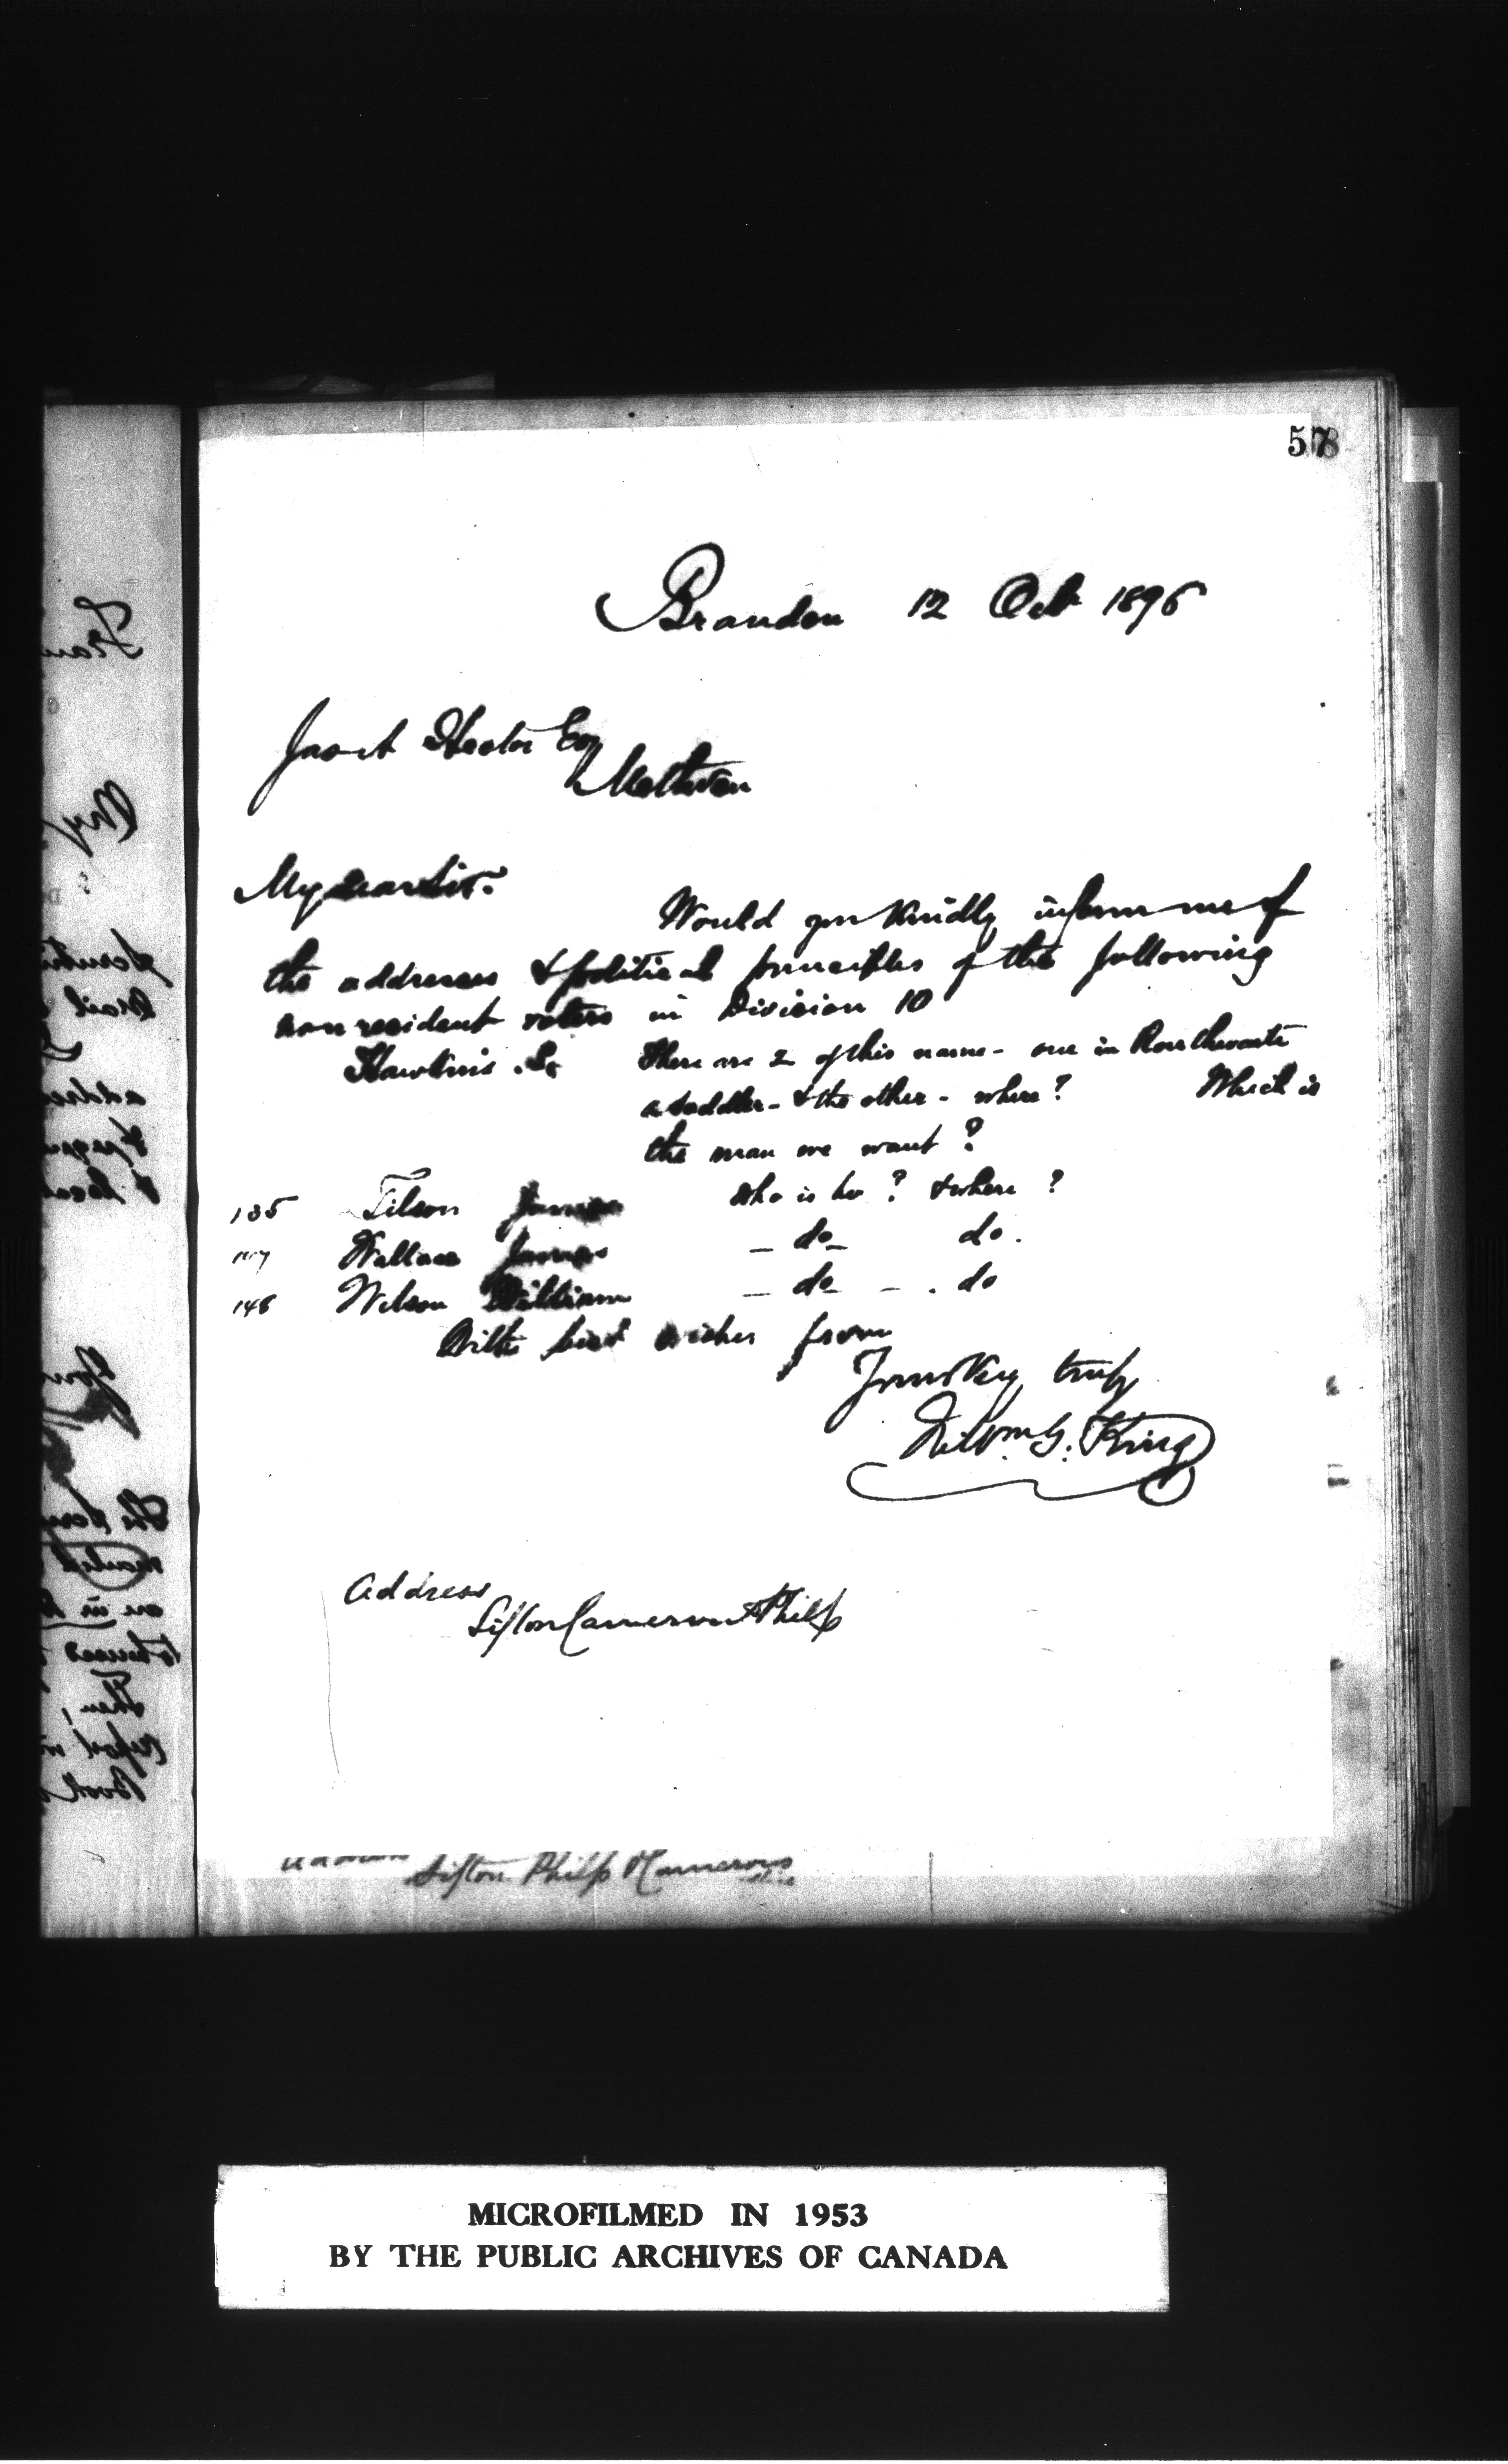 57
Brandon 12 Oct 1896
Hector Esq
Methven
My dear Sir.
Would you kindly inform me of
the addresses & political principles of the following
non resident voters in Division 10
Hawkins. There are 2 of this name - one in Rounthwaite
a saddler - & the other - where? Which is
the man we want?
135 Tilson James Who is he? & where?
Wallace James - do - do.
148 Wilson William - do - . do
With best wishes from
Yours Very truly
Wm. G. King
Address
Sifton Cameron & Philp
Address
Sifton Philp & Cameron
MICROFILMED IN 1953
BY THE PUBLIC ARCHIVES OF CANADA